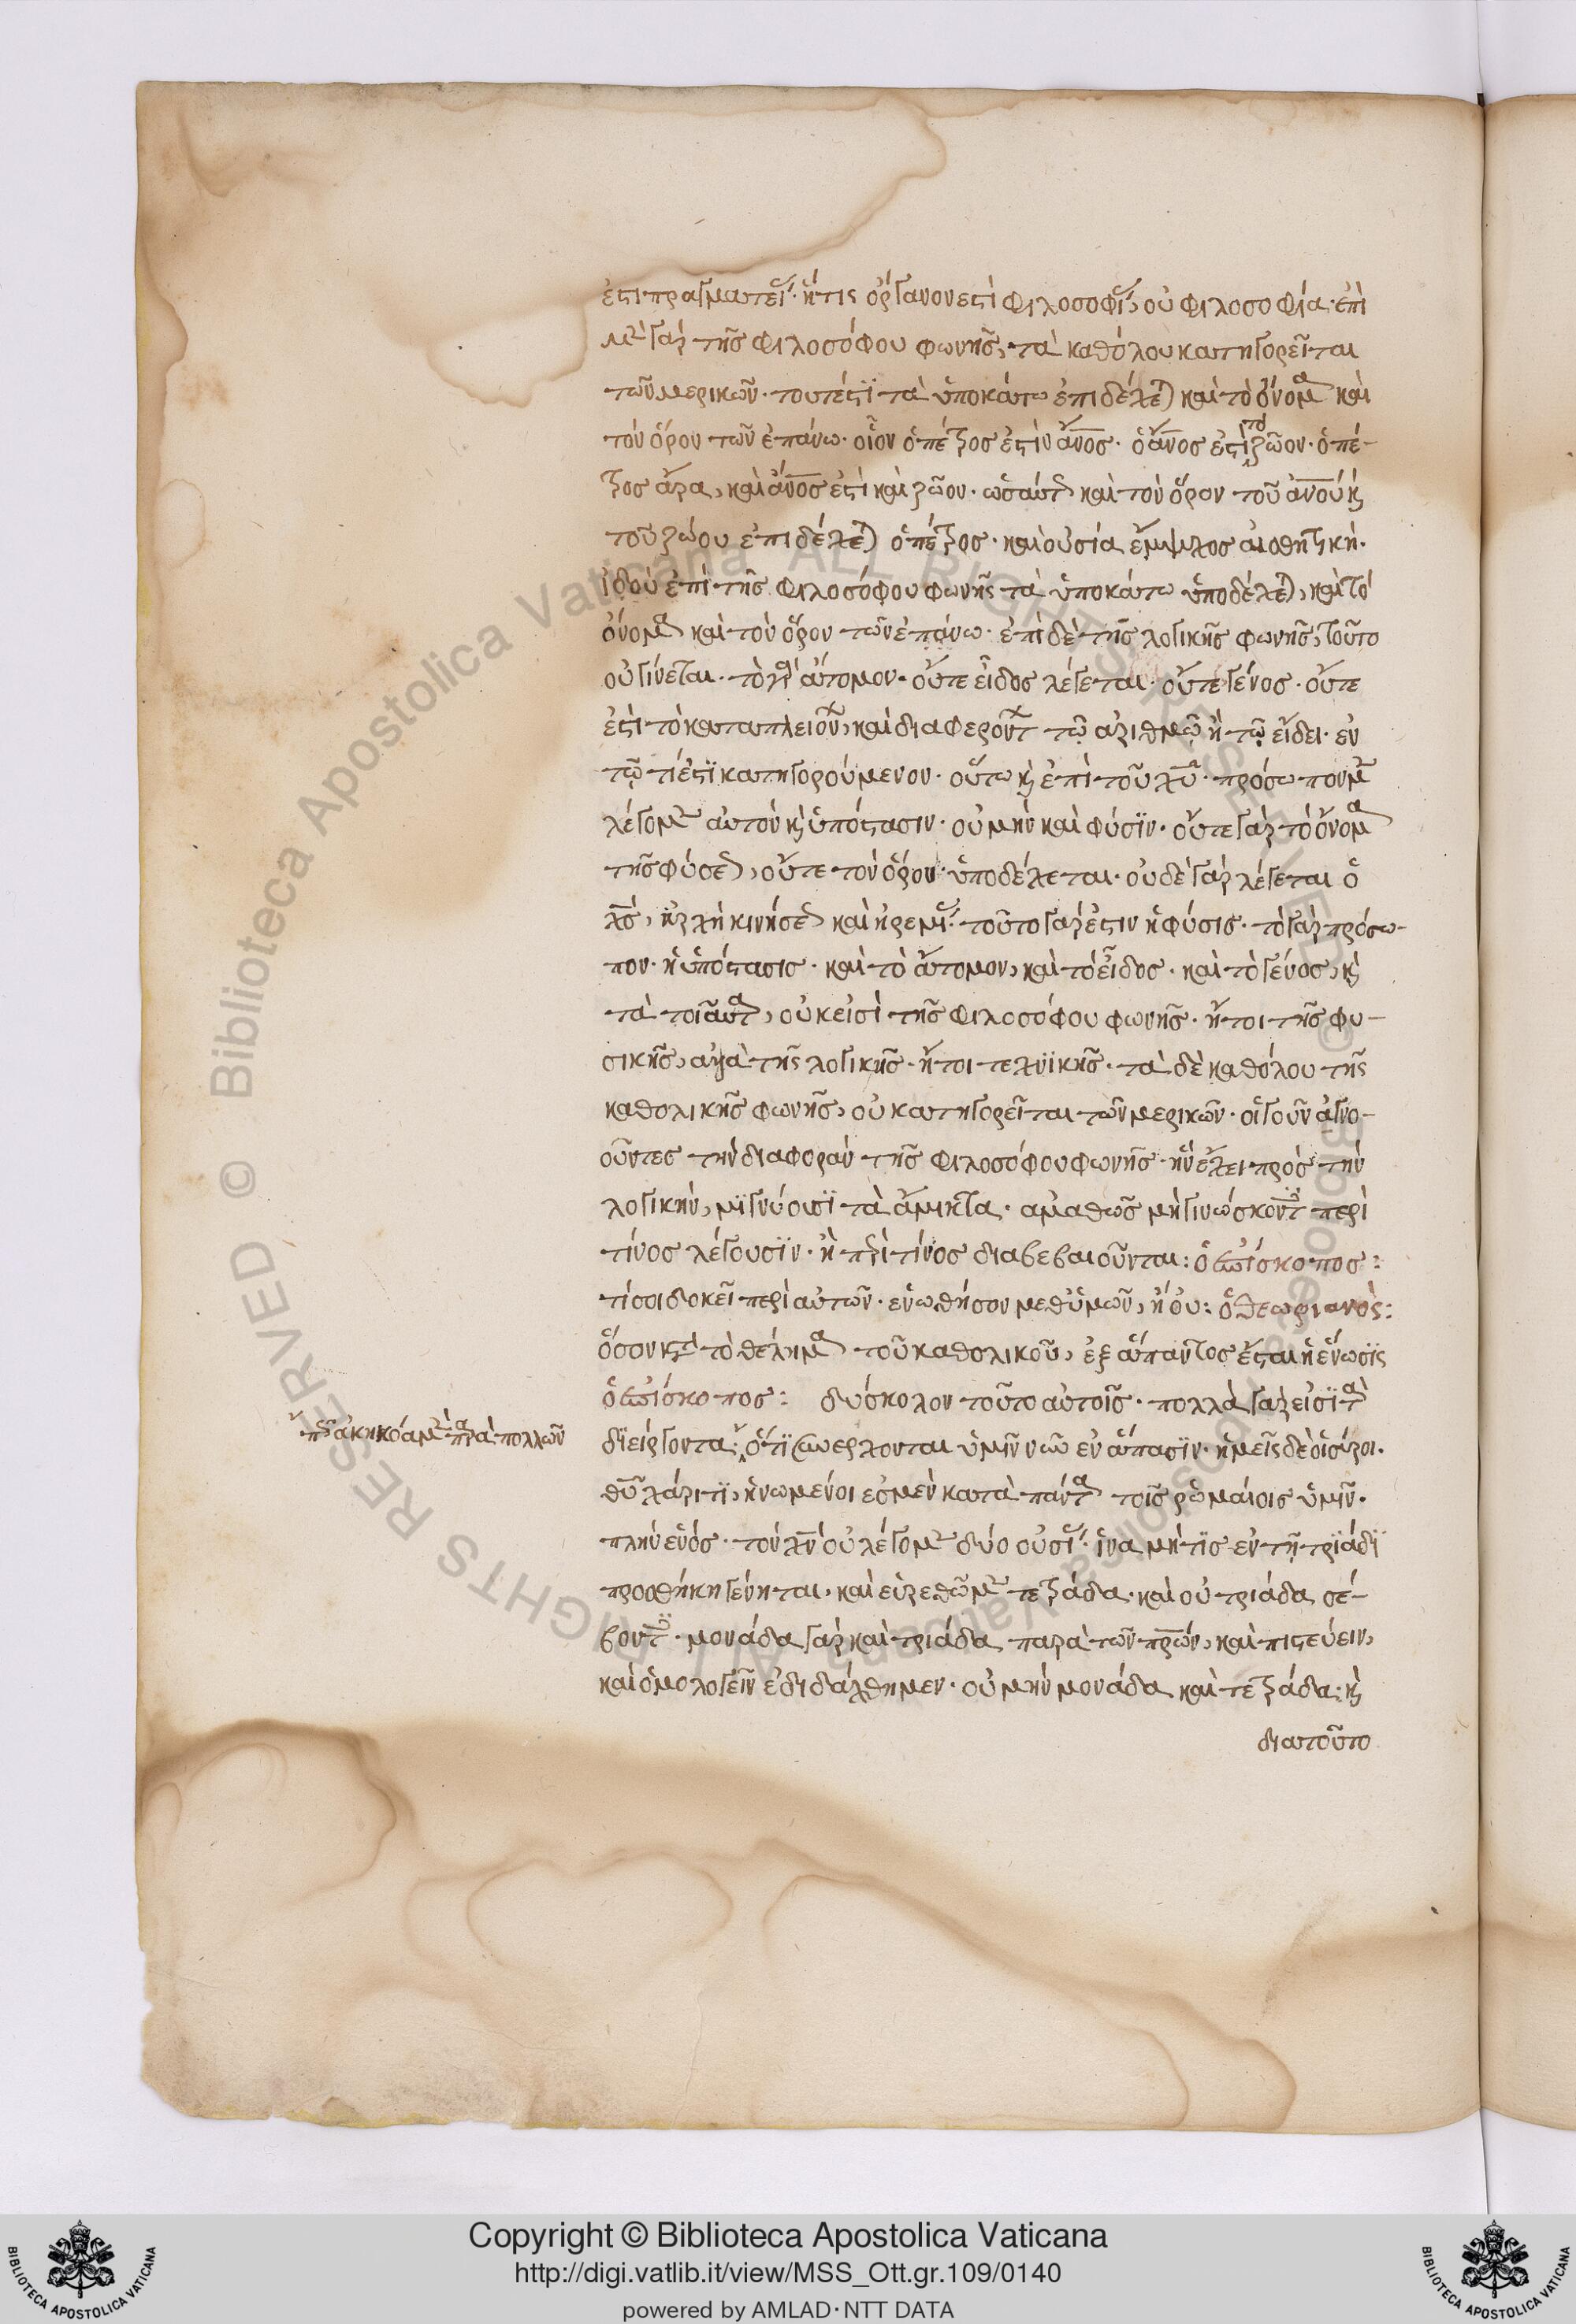 ἐστι πραγματεί· ἥτις ὄργανον ἐστὶ φιλοσοφί, οὐ φιλοσοφία· ἐπὶ
μὲν γὰρ τῆς φιλοσόφου φωνῆς, τὰ καθόλου κατηγορεῖται
τῶν μερικῶν· τουτέστι τὰ ὑποκάτω ἐπιδέχε) καὶ τὸ ὄνομα καὶ
τὸν ὅρον τῶν ἐπάνω· οἷον ὁ πέτρος ἐστὶν ἄνος· ὁ ἄνος ἐστὶ τὸ ζῶον· ὁ πέ-
τρος ἄρα, καὶ ἄνος ἐστὶ καὶ ζῶον· ὡσαύτως καὶ τὸν ὅρον τοῦ ἀνου κ
τοῦ ζώου ἐπιδέχε) ὁ πέτρος· καὶ οὐσία ἔμψυχος αἰσθητική·
ἰδοὺ ἐπὶ τῆς φιλοσόφου φωνῆς τὰ ὑποκάτω ὑποδέχε), καὶ τὸ
ὄνομα καὶ τὸν ὅρον τῶν ἐπάνω· ἐπὶ δὲ τῆς λογικῆς φωνῆς, τοῦτο
οὐ γίνεται· τὸ γὰρ ἄτομον· οὔτε εἶδος λέγεται· οὔτε γένος· οὔτε
ἐστὶ τὸ κατὰ πλειόνων, καὶ διαφερόντων τῷ ἀριθμῷ ἢ τῷ εἴδει· ἐν
τῷ τί ἐστι κατηγορούμενον· οὕτω κ ἐπὶ τοῦ χυ· πρόσωπον μὲν
λέγομεν αὐτὸν κ ὑπόστασιν· οὐ μὴν καὶ φύσϊν· οὔτε γὰρ τὸ ὄνομα
τῆς φύσεως, οὔτε τὸν ὅρον ὑποδέχεται· οὐδὲ γὰρ λέγεται ὁ
χς, ἀρχὴ κινήσεως καὶ ἠρεμί· τοῦτο γάρ ἐστιν ἡ φύσις· τὸ γὰρ πρόσω-
πον· ἡ ὑπόστασις· καὶ τὸ ἄτομον, καὶ τὸ εἶδος· καὶ τὸ γένος, κ
τὰ τοιαῦτα, οὐκ εἰσὶ τῆς φιλοσόφου φωνῆς· ἤτοι τῆς φυ-
σικῆς, ἀλλὰ τῆς λογικῆς· ἤτοι τεχνϊκῆς· τὰ δὲ καθόλου τῆς
καθολικῆς φωνῆς, οὐ κατηγορεῖται τῶν μερικῶν· οἱ γοῦν ἀγνο-
οῦντες τὴν διαφορὰν τῆς φιλοσόφου φωνῆς ἣν ἔχει πρὸς τὴν
λογικὴν, μϊγνύουσϊ τὰ ἄμικτα· ἀμαθῶς μὴ γινώσκοντες περὶ
τίνος λέγουσϊν· ἢ περὶ τίνος διαβεβαιοῦνται: ὁ ἐπίσκοπος:
τί σοι δοκεῖ περὶ αὐτῶν· ἑνωθήσον μεθ' ὑμῶν, ἢ οὐ: ὁ θεωριανὸς:
ὅσον κατὰ τὸ θέλημα τοῦ καθολικοῦ, ἐξ ἅπαντος ἔσται ἡ ἕνωσϊς
ὁ ἐπίσκοπος: δύσκολον τοῦτο αὐτοῖς· πολλὰ γὰρ εἰσϊ τὰ
διείργοντα· ὅτϊ συνέρχονται ὑμῖν νῦν ἐν ἅπασϊν· ἡμεῖς δὲ οἱ σύροι·
πλὴν ἀκηκόαμεν παρὰ πολλῶν
θυ χάριτϊ, ἡνωμένοι ἐσμὲν κατὰ πάντα τοῖς ῥωμαίοις ὑμῖν·
πλὴν ἑνός· τὸν χν οὐ λέγομεν δύο οὐσί· ἵνα μή τϊς ἐν τῇ τριάδϊ
προσθήκη γένηται, καὶ εὑρεθῶμεν τετράδα· καὶ οὐ τριάδα σέ-
βοντες· μονάδα γὰρ καὶ τριάδα παρὰ τῶν πρων, καὶ πιστεύειν,
καὶ ὁμολογεῖν ἐδιδάχθημεν· οὐ μὴν μονάδα καὶ τετράδα· κ
διατοῦτο
Copyright © Biblioteca Apostolica Vaticana
http://digi.vatlib.it/view/MSS_Ott.gr.109/0140
powered by AMLAD·NTT DATA